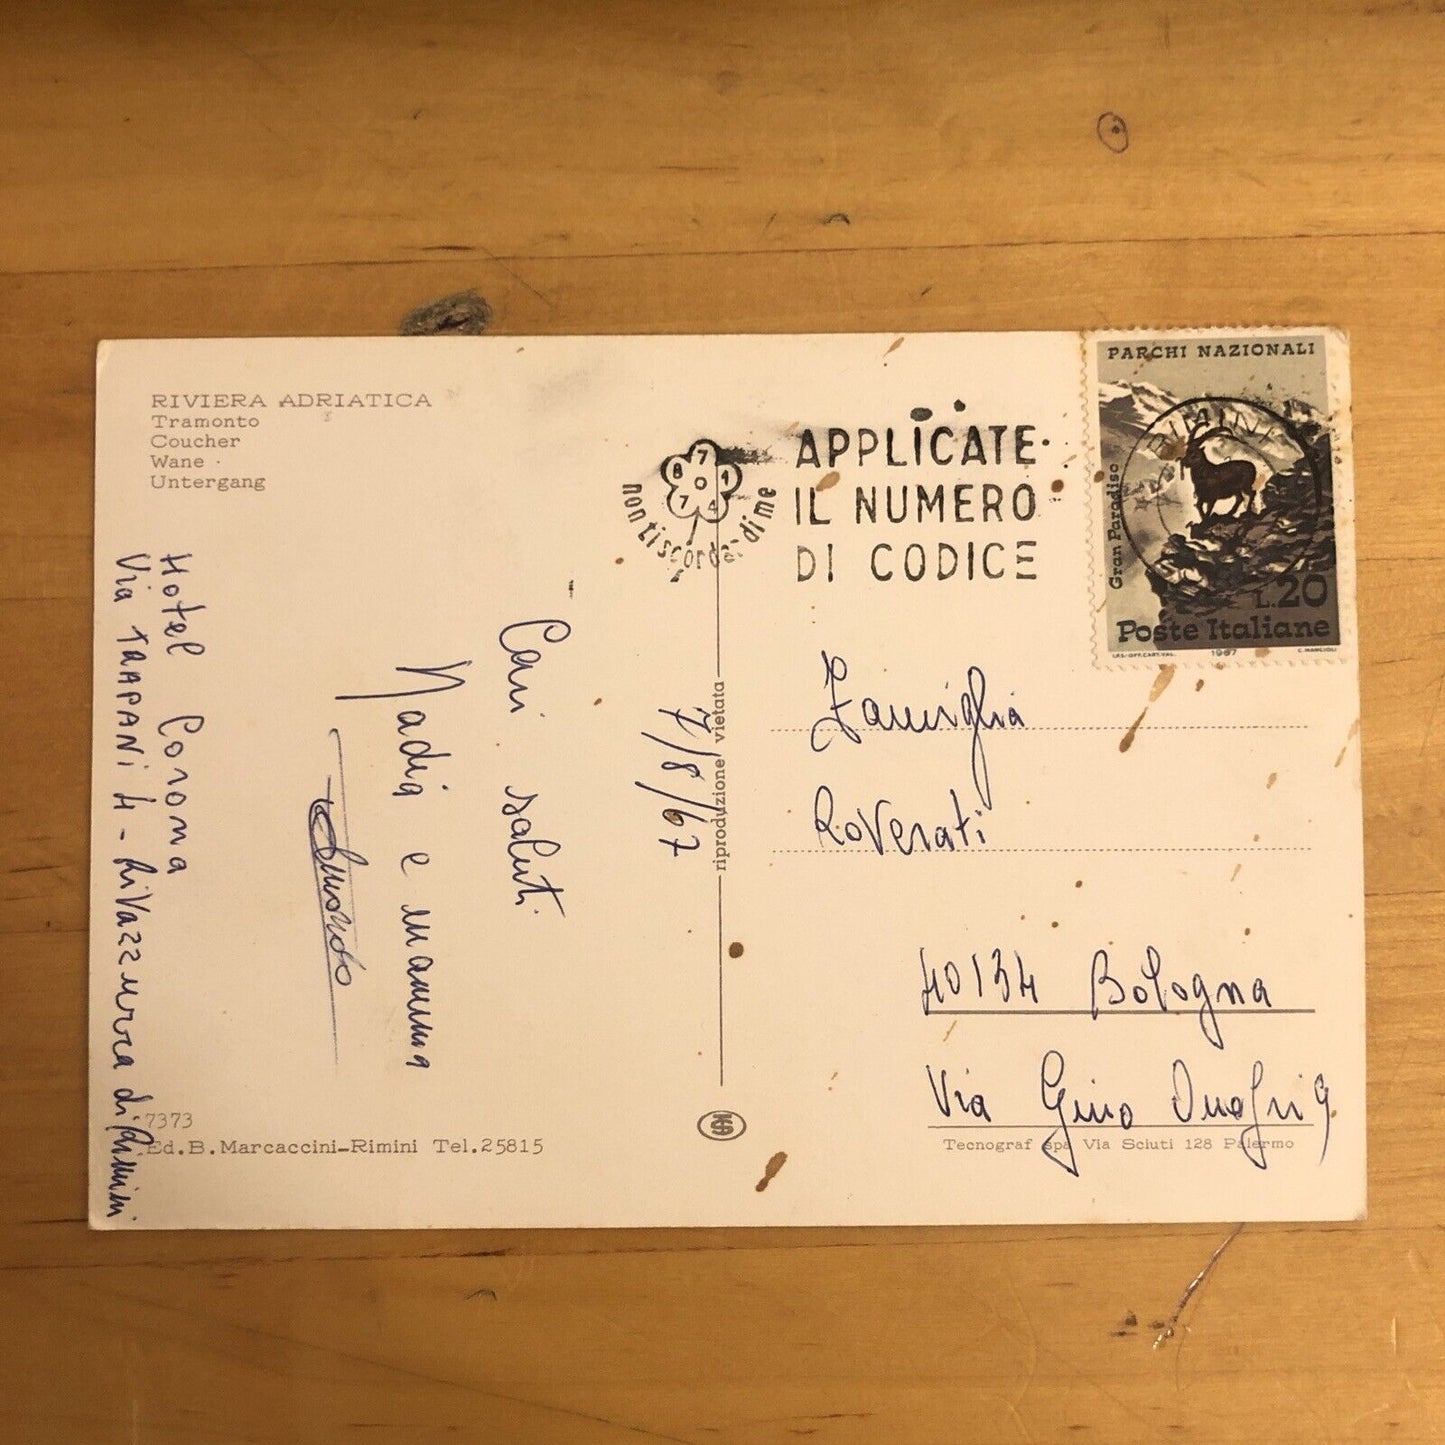 RIVIERA ADRIATICA
Tramonto
Coucher
Wane
Untergang
Hotel Corona
Via TRAPANI 4 - RiVazzurra di Rimini
Cari saluti
Nadia e mamma
7/8/67
7373
Ed. B. Marcaccini-Rimini Tel. 25815
riproduzione vietata
non ti scordar di me
APPLICATE
IL NUMERO
DI CODICE
PARCHI NAZIONALI
RIMINI
Gran Paradiso
L. 20
Poste Italiane
1967
C. MANCIOLI
Famiglia
RoVerati
40134 Bologna
Via Gino
Tecnograf spa Via Sciuti 128 Palermo